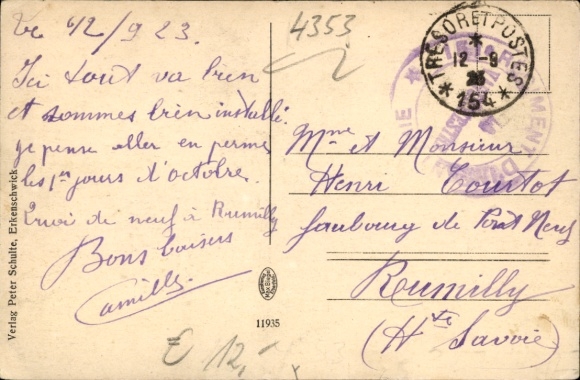 Le 12/9 23.
Ici tout va bien
et sommes bien installé.
je pense aller en perme
les 1ers jours d'octobre.
Quoi de neuf à Rumilly
Bons baisers
Camille
4353
TRESOR ET POSTES
12 - 9
23
* 154 *
Mme et Monsieur
Henri Tourtot
faubourg de Pont Neuf
Rumilly
(Hte Savoie)
Verlag Peter Schulte, Erkenschwick.
11935
E 12,-